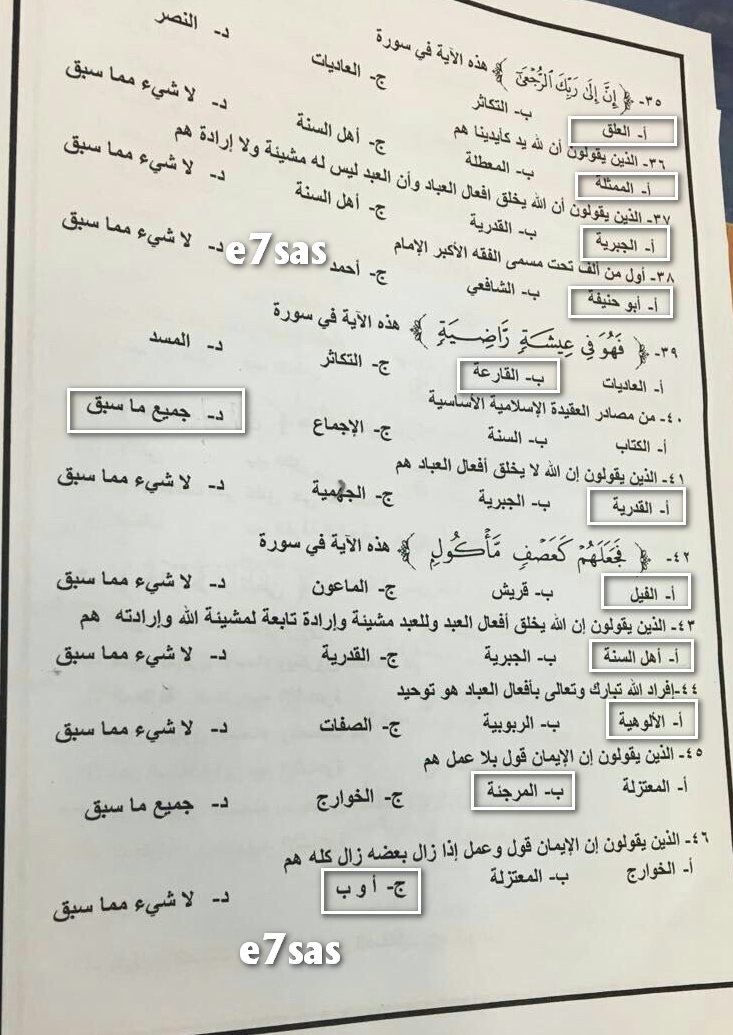 ٣٥- ﴿ إِنَّ إِلَىٰ رَبِّكَ ٱلرُّجْعَىٰٓ ﴾ هذه الآية في سورة
أ- العلق ب- التكاثر ج- العاديات د- النصر
٣٦- الذين يقولون أن لله يد كأيدينا هم
أ- الممثلة ب- المعطلة ج- أهل السنة د- لا شيء مما سبق
٣٧- الذين يقولون أن الله يخلق افعال العباد وأن العبد ليس له مشيئة ولا إرادة هم
أ- الجبرية ب- القدرية ج- أهل السنة د- لا شيء مما سبق
٣٨- أول من ألف تحت مسمى الفقه الأكبر الإمام
أ- أبو حنيفة ب- الشافعي ج- أحمد د- لا شيء مما سبق
e7sas
٣٩- ﴿ فَهُوَ فِي عِيشَةٍ رَّاضِيَةٍ ﴾ هذه الآية في سورة
أ- العاديات ب- القارعة ج- التكاثر د- المسد
٤٠- من مصادر العقيدة الإسلامية الأساسية
أ- الكتاب ب- السنة ج- الإجماع د- جميع ما سبق
٤١- الذين يقولون إن الله لا يخلق أفعال العباد هم
أ- القدرية ب- الجبرية ج- الجهمية د- لا شيء مما سبق
٤٢- ﴿ فَجَعَلَهُمْ كَعَصْفٍ مَّأْكُولٍ ﴾ هذه الآية في سورة
أ- الفيل ب- قريش ج- الماعون د- لا شيء مما سبق
٤٣- الذين يقولون إن الله يخلق أفعال العبد وللعبد مشيئة وإرادة تابعة لمشيئة الله وإرادته هم
أ- أهل السنة ب- الجبرية ج- القدرية د- لا شيء مما سبق
٤٤-إفراد الله تبارك وتعالى بأفعال العباد هو توحيد
أ- الألوهية ب- الربوبية ج- الصفات د- لا شيء مما سبق
٤٥- الذين يقولون إن الإيمان قول بلا عمل هم
أ- المعتزلة ب- المرجئة ج- الخوارج د- جميع ما سبق
٤٦- الذين يقولون إن الإيمان قول وعمل إذا زال بعضه زال كله هم
أ- الخوارج ب- المعتزلة ج- أ و ب د- لا شيء مما سبق
e7sas